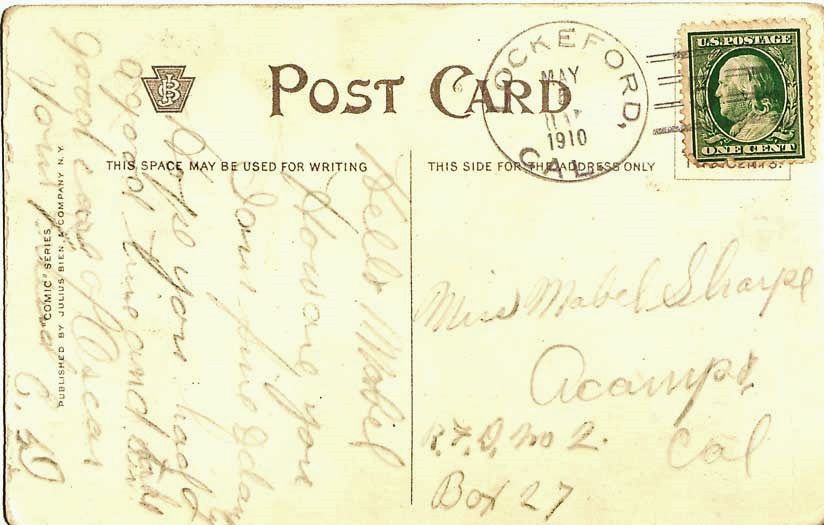 POST CARD
THIS SPACE MAY BE USED FOR WRITING
THIS SIDE FOR THE ADDRESS ONLY
OCKEFORD,
MAY
1910
CAL.
U.S. POSTAGE
ONE CENT
Hello Mabel
How are you
fine & dan
Hope you had
a good time and
good care of Oscar
your friend
C. D
Miss Mabel Sharpe
Acampo,
Cal
R.F.D. No 2.
Box 27
"COMIC" SERIES
PUBLISHED BY JULIUS BIEN & COMPANY N.Y.